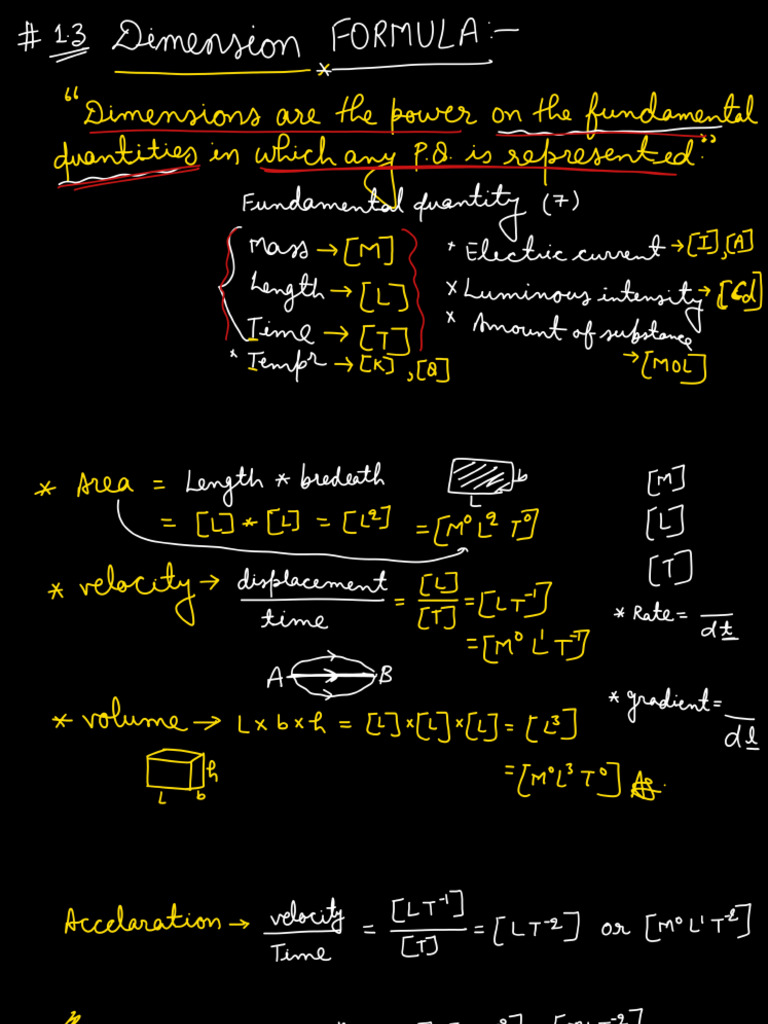 # 1.3 Dimension FORMULA:-
"Dimensions are the power on the fundamental
quantities in which any P.Q. is represented."
Fundamental quantity (7)
Mass → [M]
Length → [L]
Time → [T]
* Tempr → [K], [Q]
* Electric current → [I], [A]
x Luminous intensity → [Cd]
x Amount of substance
→ [MOL]
* Area = Length * bredeath
= [L] * [L] = [L²] = [M⁰ L² T⁰]
L b
[M]
[L]
[T]
* velocity → displacement / time = [L] / [T] = [L T⁻¹]
= [M⁰ L¹ T⁻¹]
* Rate = — / dt
A B
* gradient = — / dl
* volume → L x b x h = [L] x [L] x [L] = [L³]
= [M⁰ L³ T⁰]
L b h
Accelaration → velocity / Time = [L T⁻¹] / [T] = [L T⁻²] or [M⁰ L¹ T⁻²]